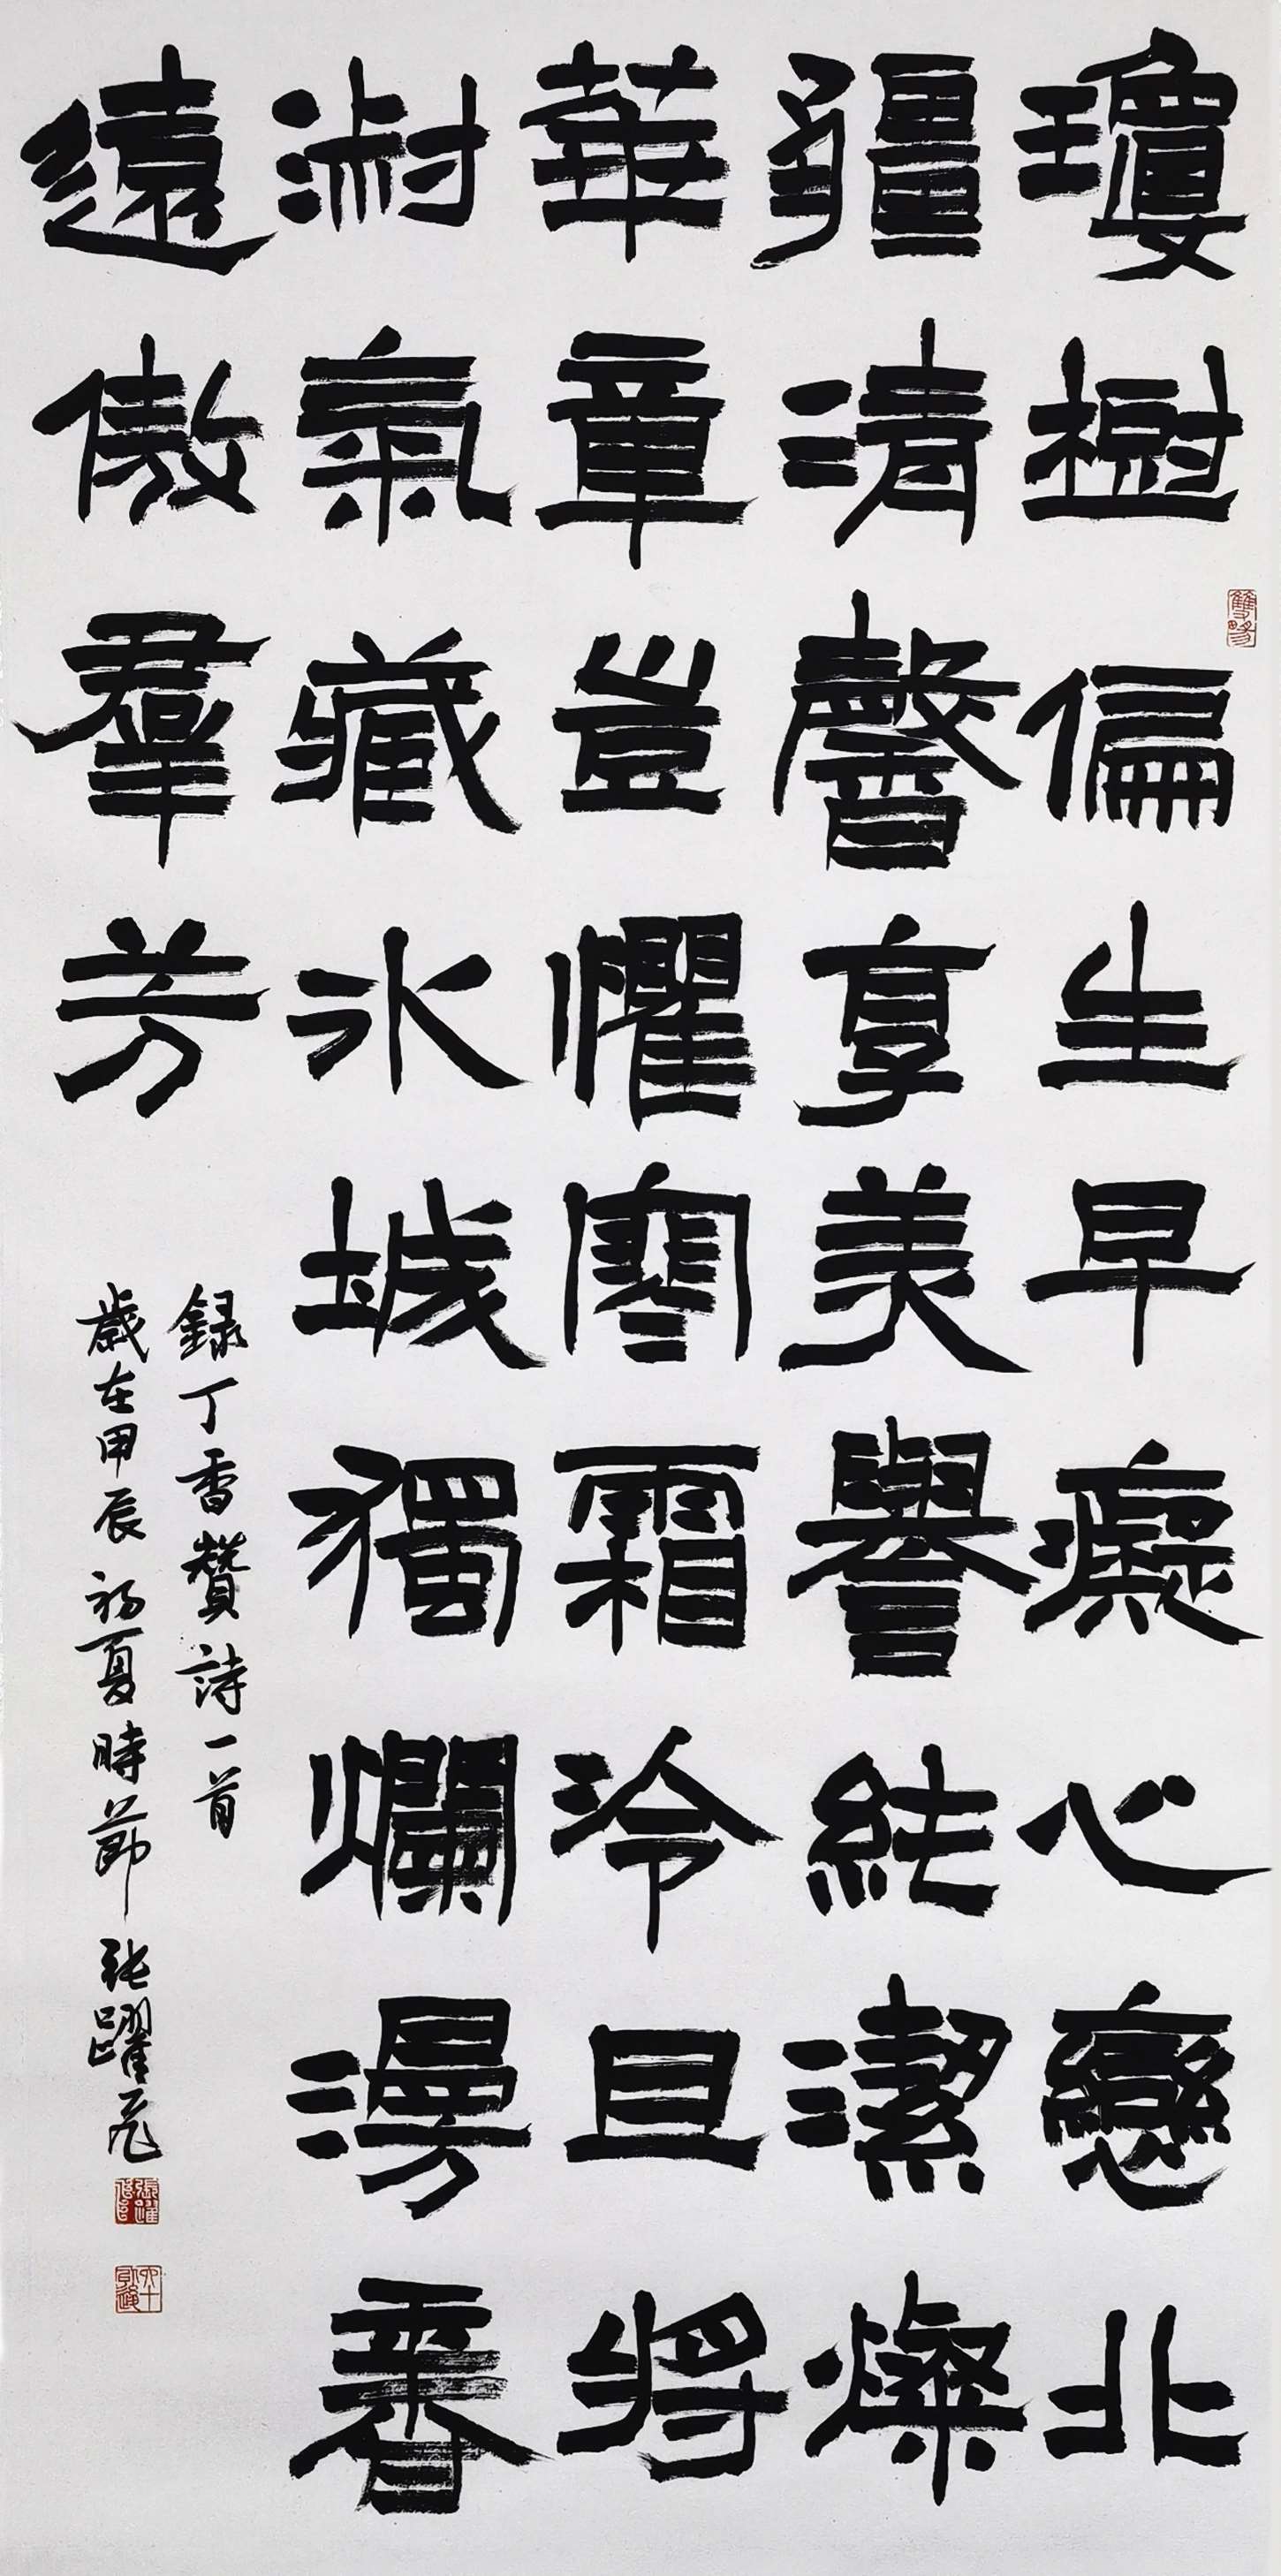 瓊樹偏生早癡心戀北
疆清馨享美譽純潔燦
華章豈懼寒霜冷且將
淑氣藏冰城獨爛漫香
遠傲羣芳
錄丁香贊詩一首
歲在甲辰初夏時節張躍飛